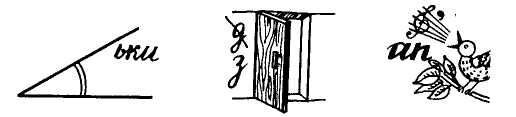 ьки
д
з
ап,